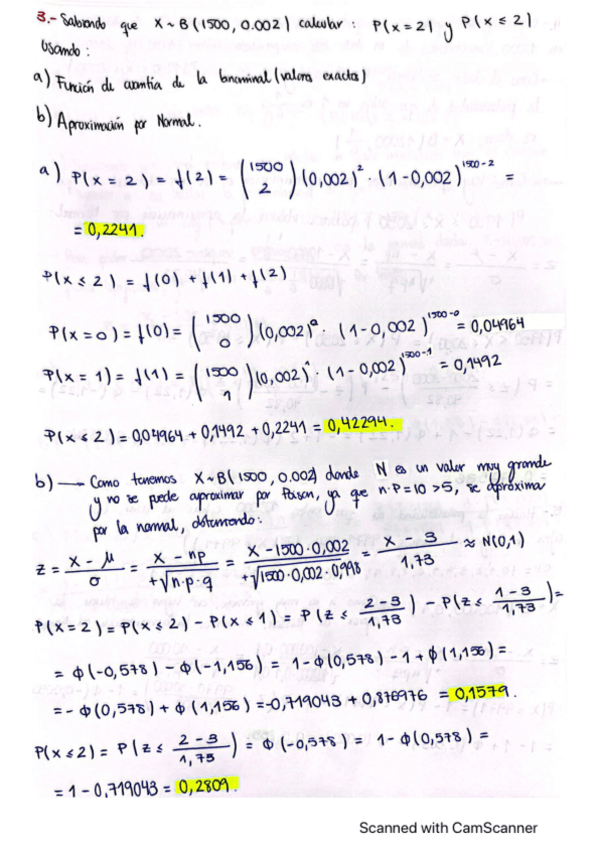 3.- Sabiendo que X ~ B(1500, 0.002) calcular : P(x = 2) y P(x ≤ 2)
Usando :
a) Función de cuantía de la binomial (valores exactos)
b) Aproximación por Normal.
a) P(x = 2) = f(2) = (1500 2) (0,002)² · (1 - 0,002)^1500-2 =
= 0,2241.
P(x ≤ 2) = f(0) + f(1) + f(2)
P(x = 0) = f(0) = (1500 0) (0,002)⁰ · (1 - 0,002)^1500-0 = 0,04964
P(x = 1) = f(1) = (1500 1) (0,002)¹ · (1 - 0,002)^1500-1 = 0,1492
P(x ≤ 2) = 0,04964 + 0,1492 + 0,2241 = 0,42294.
b) → Como tenemos X ~ B(1500, 0.002) donde N es un valor muy grande
y no se puede aproximar por Poison, ya que n·P = 10 > 5, se aproxima
por la normal, obteniendo :
z = x - μ / σ = x - np / +√n·p·q = x - 1500·0,002 / +√1500·0,002·0,998 = x - 3 / 1,73 ≈ N(0,1)
P(x = 2) = P(x ≤ 2) - P(x ≤ 1) = P(z ≤ 2 - 3 / 1,73) - P(z ≤ 1 - 3 / 1,73) =
= ϕ(-0,578) - ϕ(-1,156) = 1 - ϕ(0,578) - 1 + ϕ(1,156) =
= - ϕ(0,578) + ϕ(1,156) = -0,719043 + 0,876976 = 0,1579.
P(x ≤ 2) = P(z ≤ 2 - 3 / 1,73) = ϕ(-0,578) = 1 - ϕ(0,578) =
= 1 - 0,719043 = 0,2809.
Scanned with CamScanner